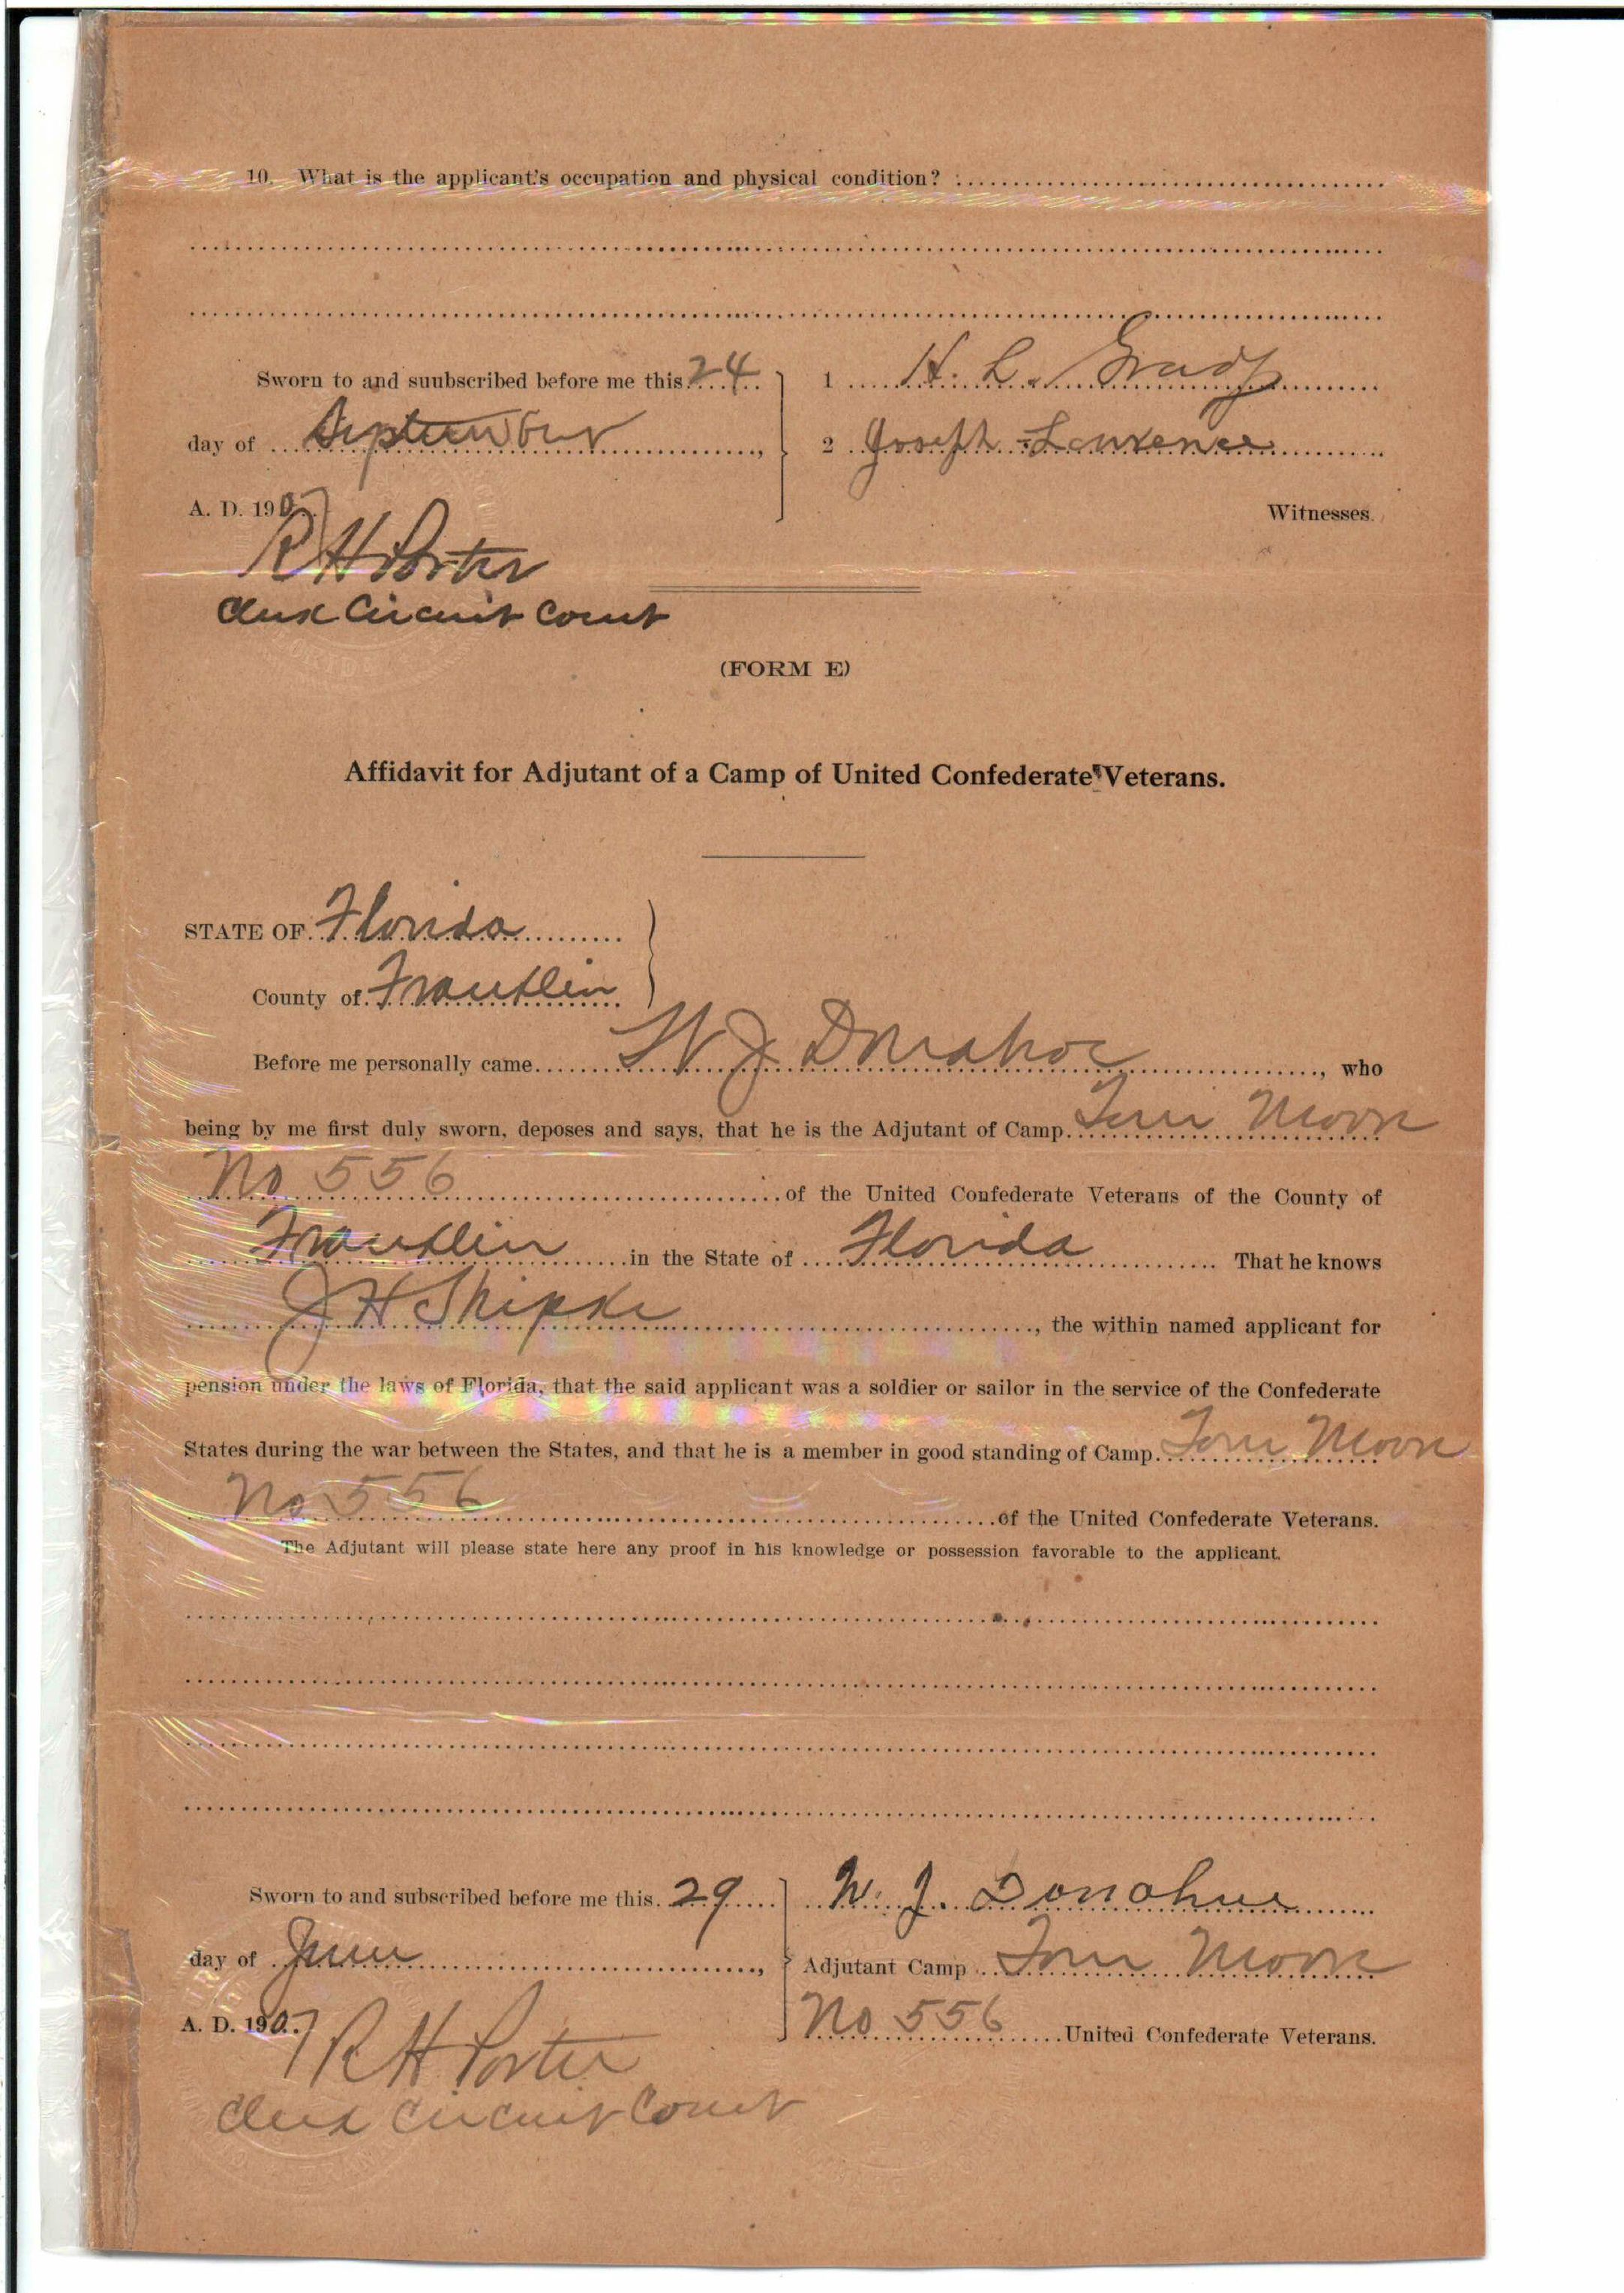 10. What is the applicant's occupation and physical condition?
Sworn to and suubscribed before me this 24
1 H. L. Grady
day of September,
2 Joseph Lawrence
A. D. 1907
Witnesses.
R H Porter
Clerk Circuit Court
(FORM E)
Affidavit for Adjutant of a Camp of United Confederate Veterans.
STATE OF Florida
County of Franklin
Before me personally came W J Donahoe, who
being by me first duly sworn, deposes and says, that he is the Adjutant of Camp Tom Moore
No 556 of the United Confederate Veterans of the County of
Franklin in the State of Florida That he knows
J H, the within named applicant for
pension under the laws of Florida, that the said applicant was a soldier or sailor in the service of the Confederate
States during the war between the States, and that he is a member in good standing of Camp Tom Moore
No 556 of the United Confederate Veterans.
The Adjutant will please state here any proof in his knowledge or possession favorable to the applicant.
Sworn to and subscribed before me this 29
W. J. Donohue
day of June,
Adjutant Camp Tom Moore
A. D. 1907
No 556 United Confederate Veterans.
R H Porter
Clerk Circuit Court